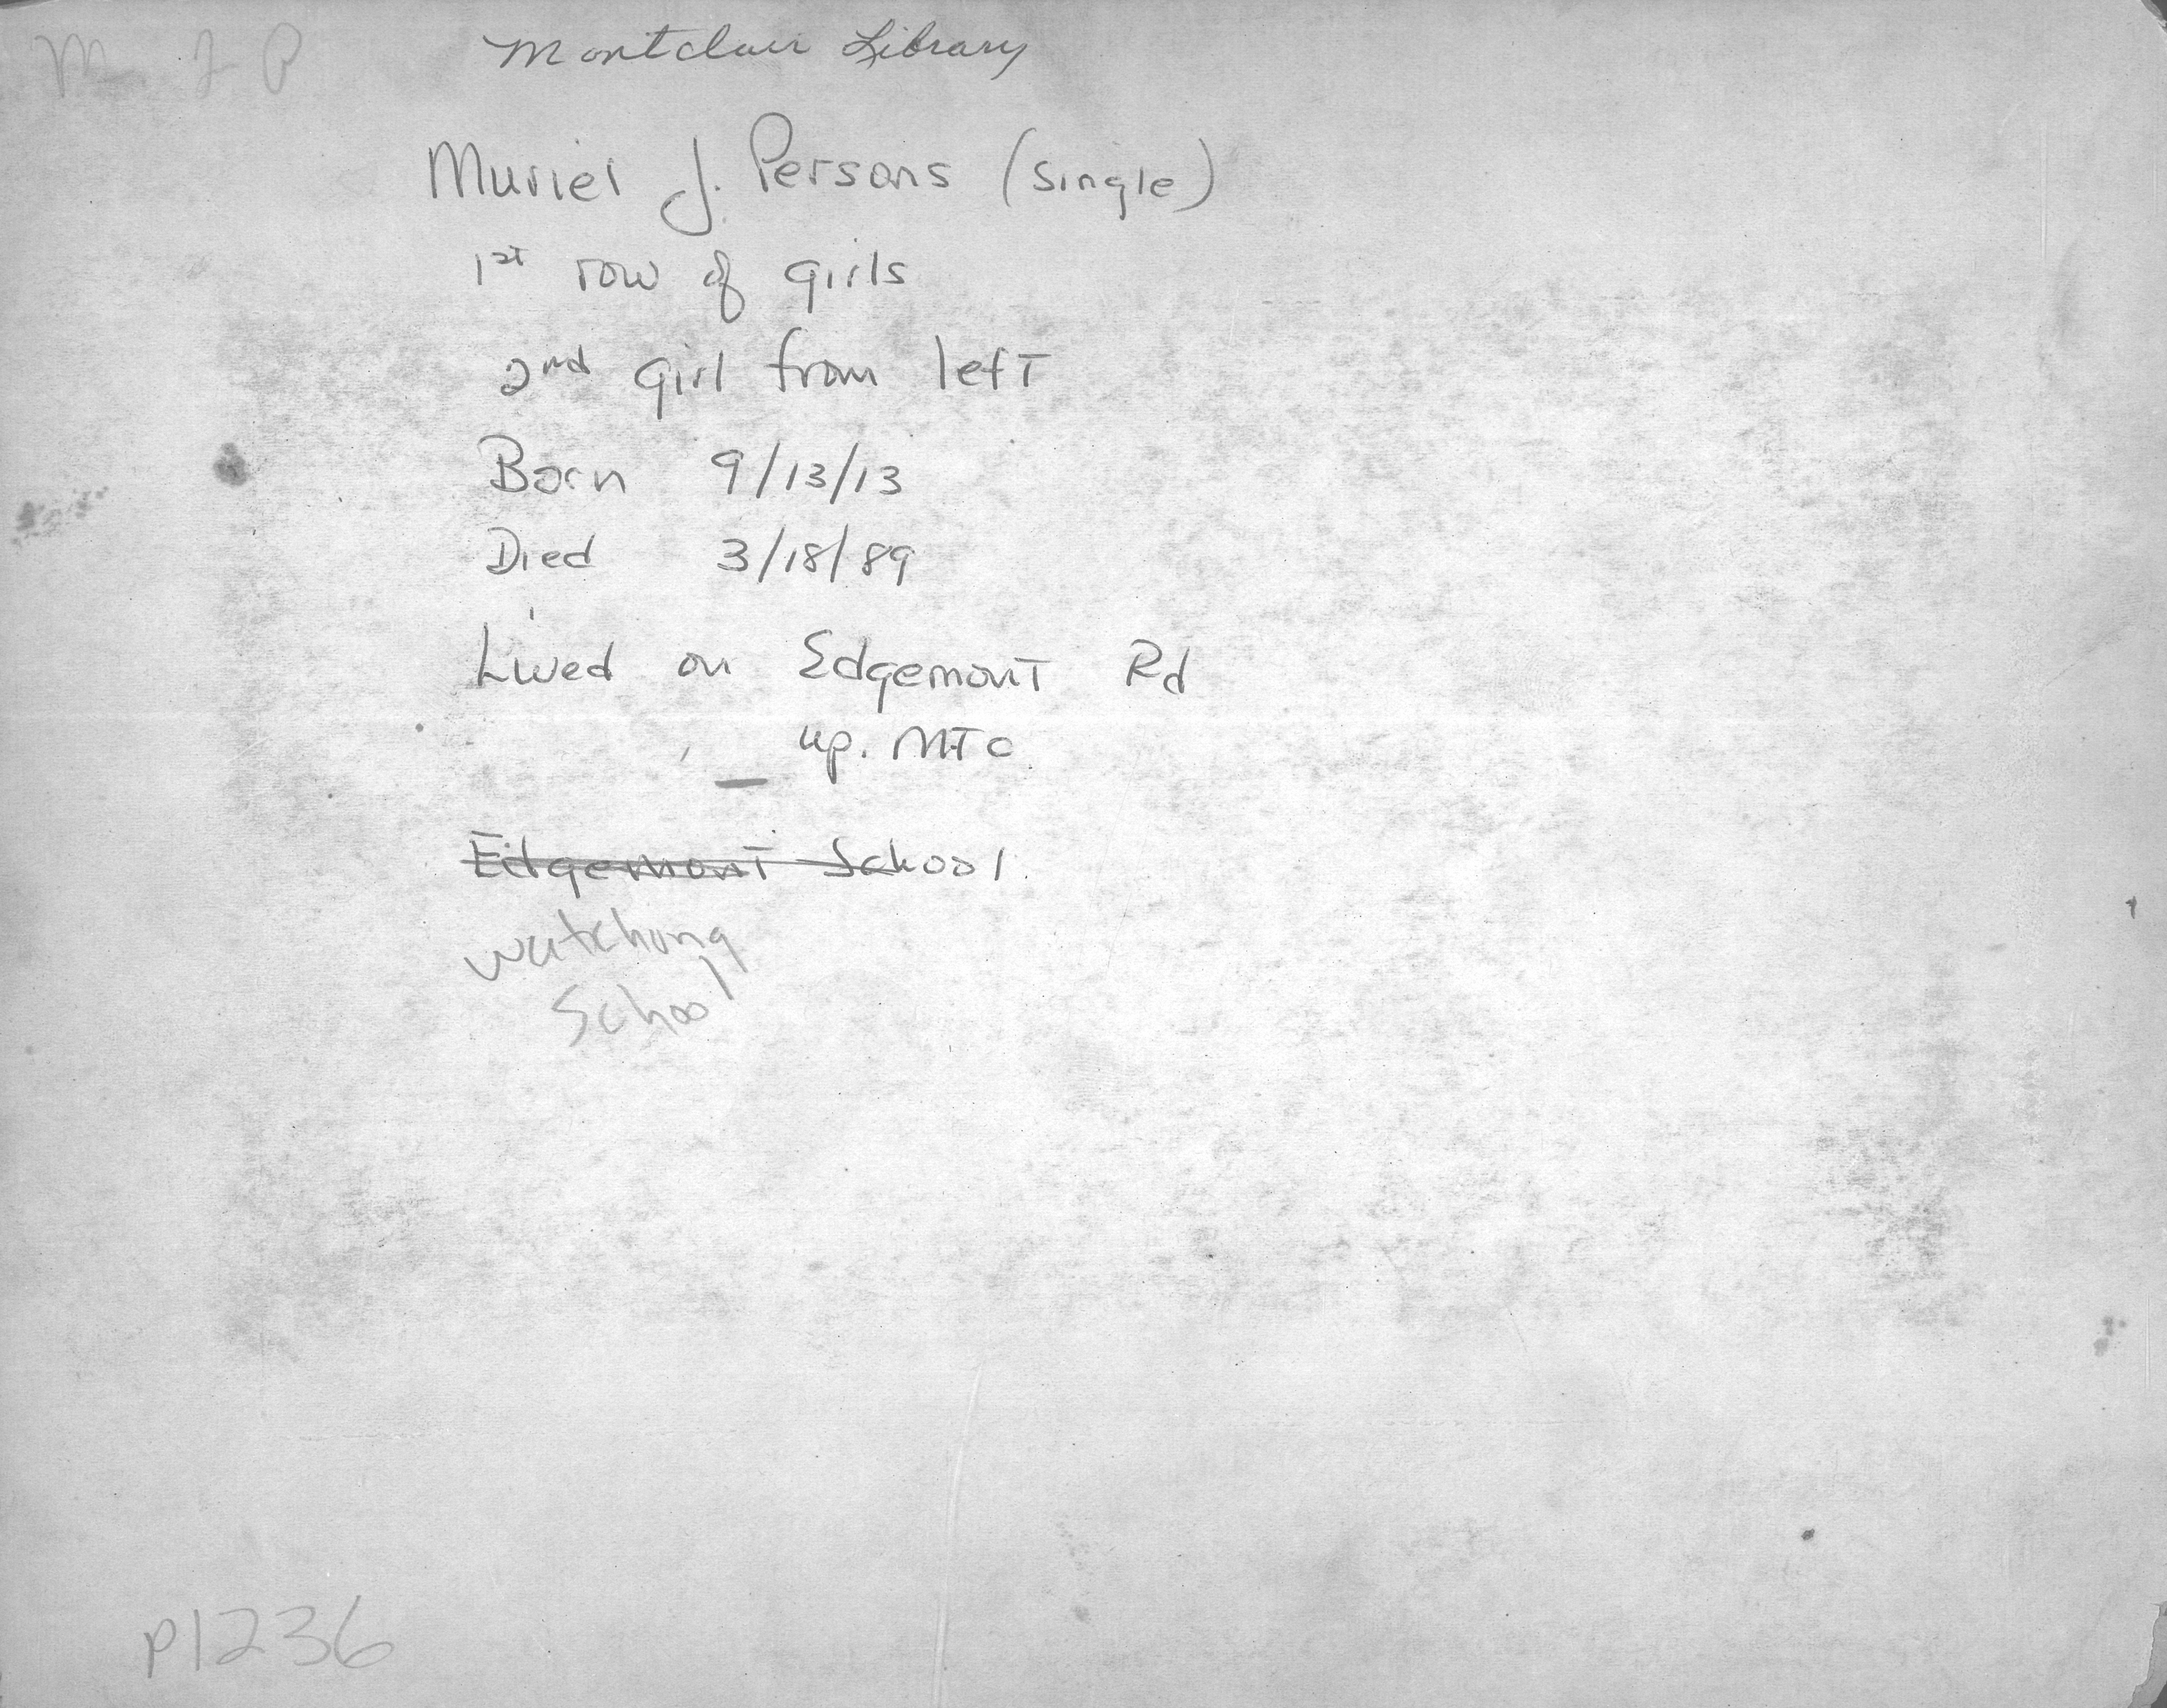 M J P
Montclair Library
Muriel J. Persons (single)
1st row of girls
2nd girl from left
Born 9/13/13
Died 3/18/89
Lived on Edgemont Rd
up. MTC
Edgemont School.
Watchung
School
P1236